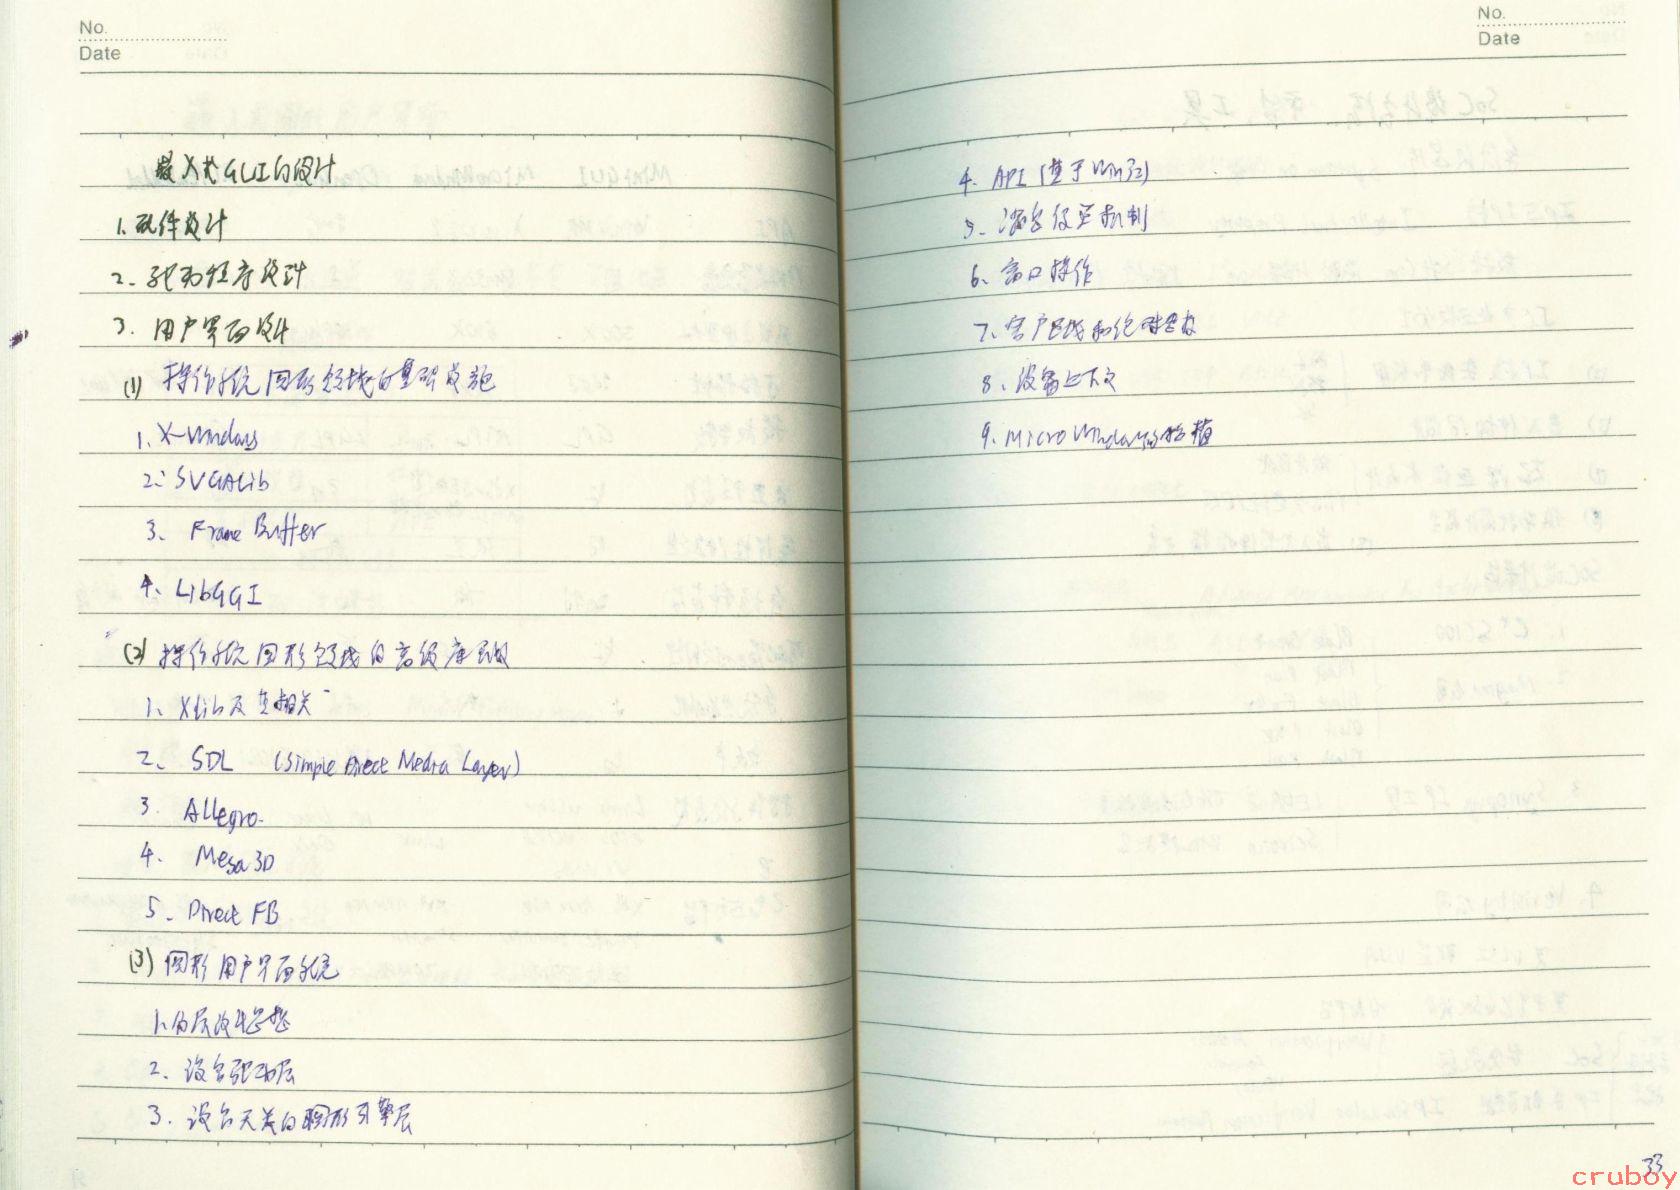 No.
Date
嵌入式GUI的设计
1.硬件设计
2.驱动程序设计
3.用户界面设计
(1)操作系统图形领域的基础设施
1.X-Windows
2.SVGALib
3.Frame Buffer
4.LibGGI
(2)操作系统图形领域的高级库函数
1.Xlib及其相关
2.SDL (Simple Direct Media Layer)
3.Allegro.
4.Mesa3D
5.Direct FB
(3)图形用户界面系统
1.分层设计思想
2.设备驱动层
3.设备无关的图形引擎层
No.
Date
4.API(基于Win32)
5.消息传递机制
6.窗口操作
7.客户区域和绝对坐标
8.设备上下文
9.MicroWindows的移植
33
cruboy